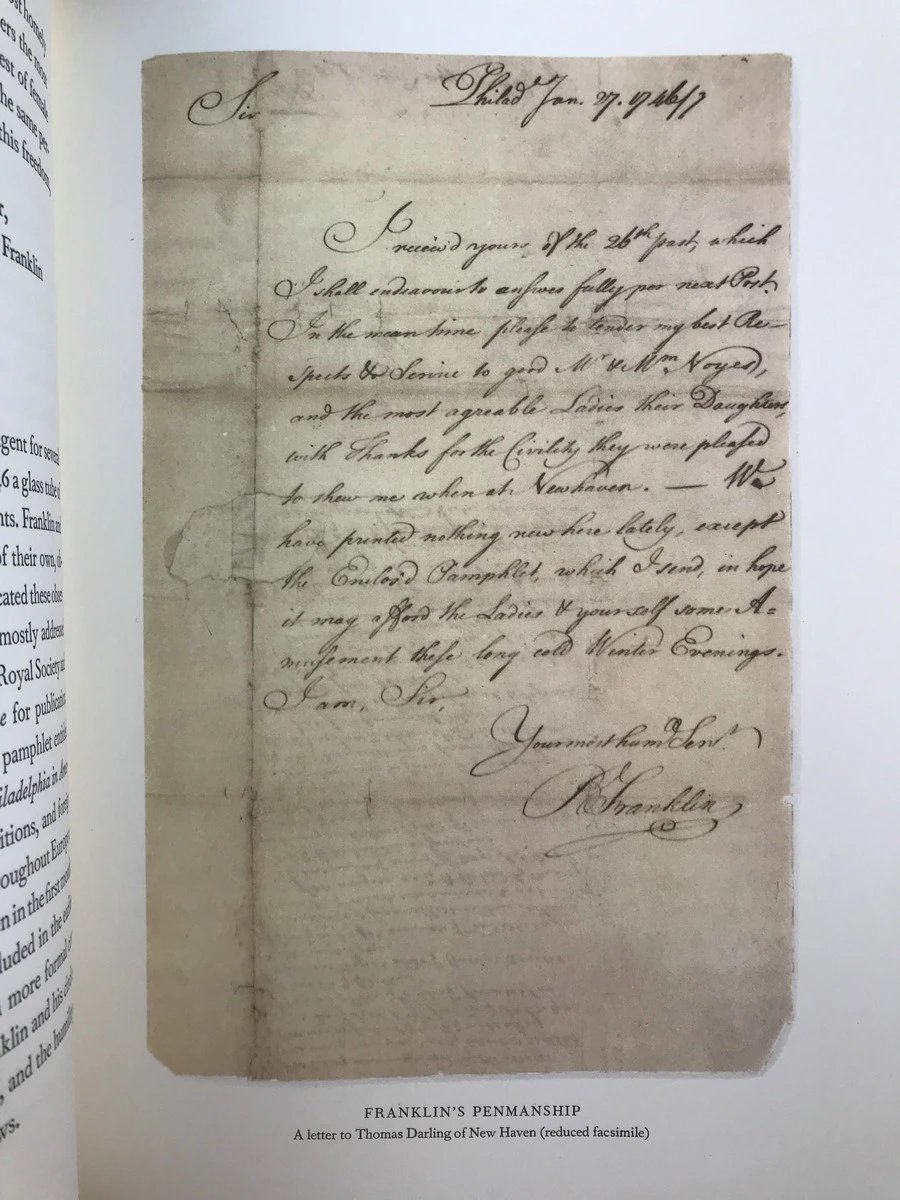 ost homely
ers the most
est of female
he same per-
this freedom,
r,
Franklin
gent for several
46 a glass tube
nts. Franklin and
of their own, 
cated these 
mostly 
Royal Society 
e for publication
pamphlet 
iladelphia in 
itions, and 
oughout Europe
n in the first 
luded in the 
more formal 
klin and his 
, and the 
ws.
Sir Philad.ᵃ Jan. 27. 1746/7
I receiv'd yours of the 26th past, which
I shall endeavour to answer fully per next Post.
In the mean time please to tender my best Re-
spects & Service to good Mʳ & Mʳˢ Noyes,
and the most agreable Ladies their Daughters,
with Thanks for the Civility they were pleased
to shew me when at Newhaven. — We
have printed nothing new here lately, except
the Enclos'd Pamphlet, which I send, in hope
it may afford the Ladies & yourself some A=
musement these long cold Winter Evenings.
I am, Sir,
Your most humᵉ Servᵗ
B Franklin
FRANKLIN'S PENMANSHIP
A letter to Thomas Darling of New Haven (reduced facsimile)